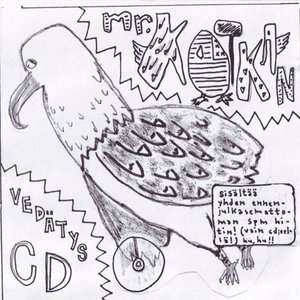 mr.
VEDÄTYS
CD
sisältää
yhden ennen-
julkasematto-
man spm hi-
tin! (vain cd:eel-
lä!) hu, hu!!